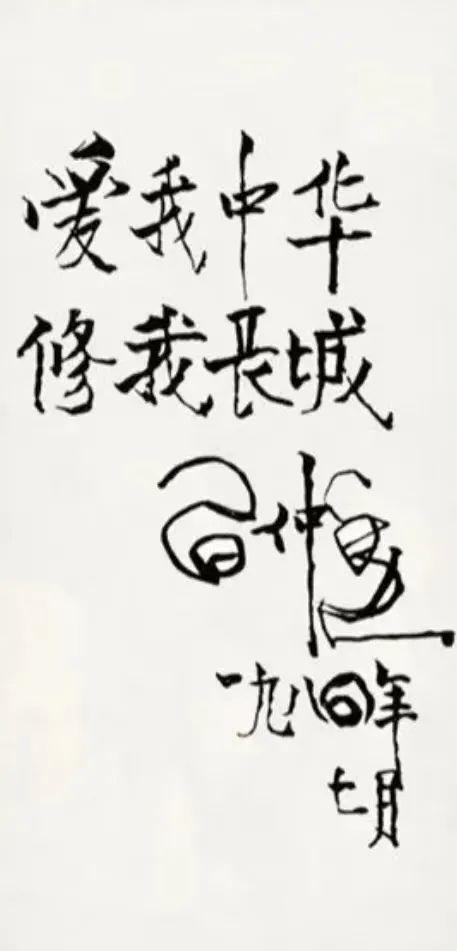 爱我中华
修我長城
習仲勛
一九八四年
七月